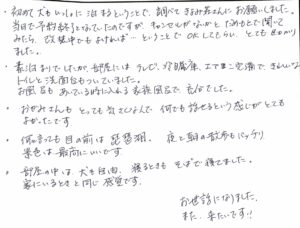 ・初めて犬もいっしょに泊まるということで、調べてきよみ荘さんにお願いしました。
当日で予約終了となっていたのですが、キャンセルがないかとだめもとで聞いて
みたら、改装中でもよければ…ということでOKしてもらい、とても助かり
ました。
・素泊まりでしたが、部屋には テレビ、冷暖房、エアコン完備で、きれいな
トイレと洗面台もついていました。
お風呂も あいている時に入れる家族風呂で充分でした。
・おかみさんも とっても気さくな人で 何でも話せるという感じがとても
よかったです。
・何と言っても目の前は 琵琶湖。 夜と朝の散歩もバッチリ
景色は最高にいいです。
・部屋の中は、犬も自由、寝るときも そばで寝てました。
家にいるときと同じ感覚です。
お世話になりました。
また、来たいです!!